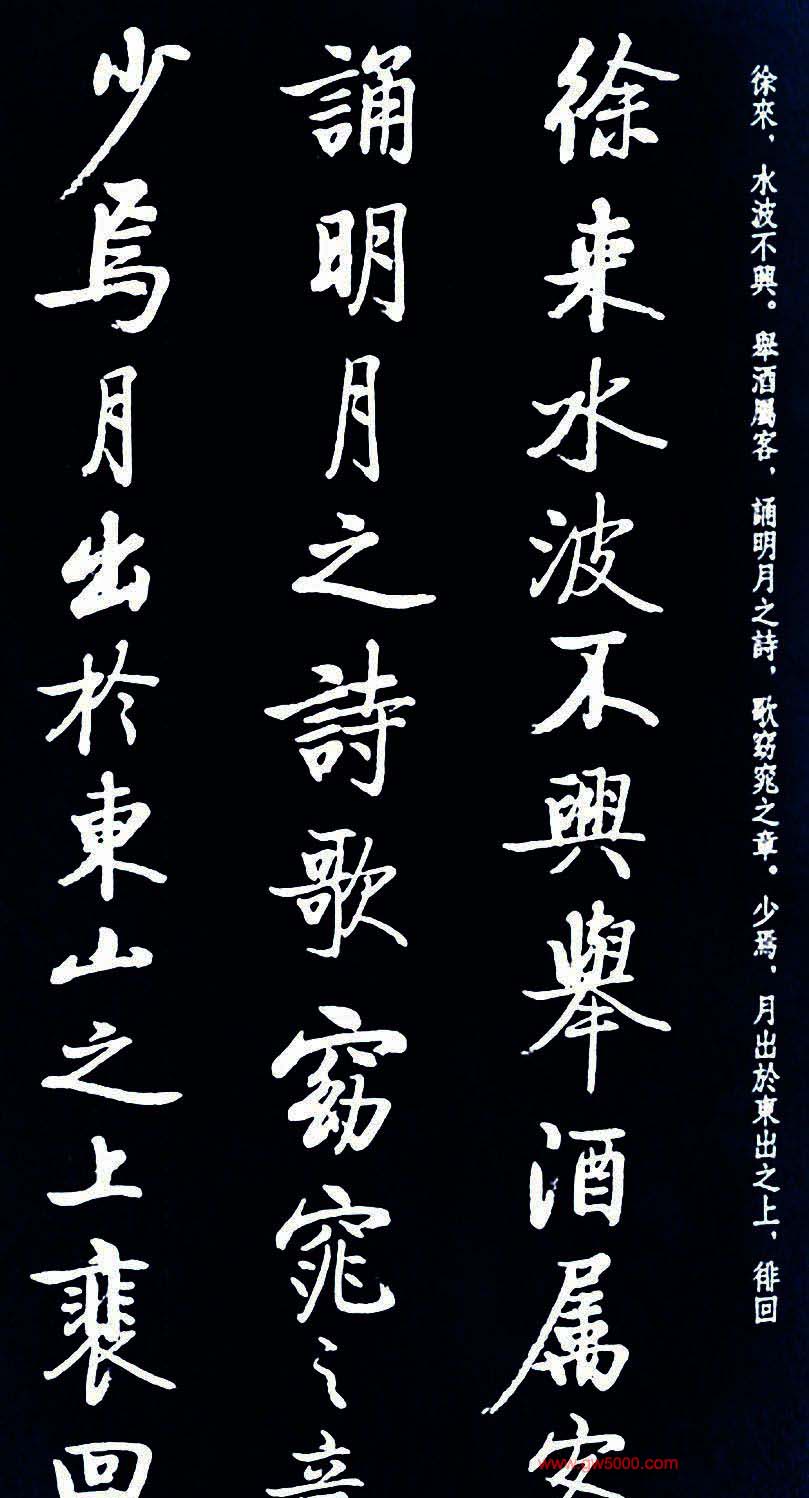 徐來，水波不興。舉酒屬客，誦明月之詩，歌窈窕之章。少焉，月出於東出之上，徘回
徐来水波不興舉酒属客
誦明月之詩歌窈窕之章
少焉月出於東山之上裵回
www.cjw5000.com